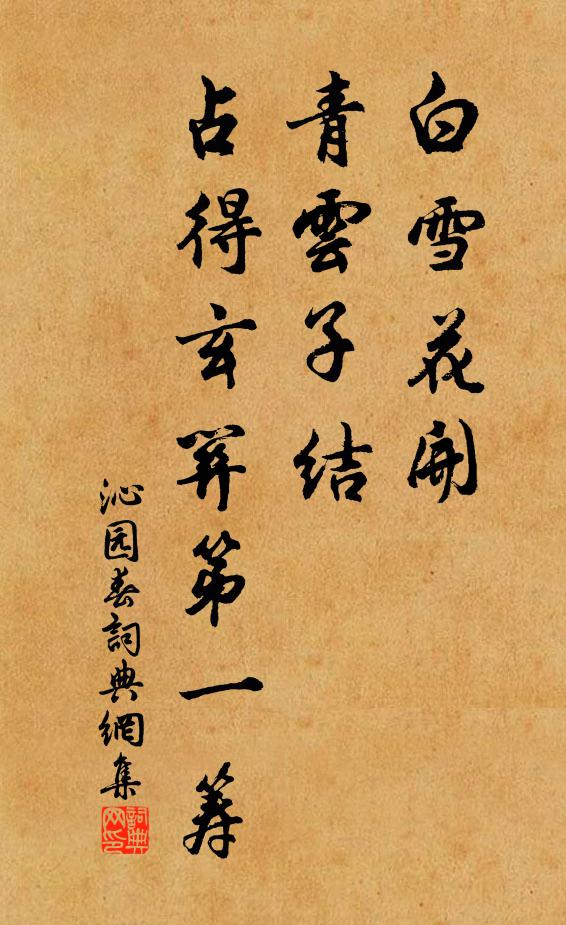 白雪花開
青雲子結
占得玄關第一筹
沁园春詞典網集
詞典网印